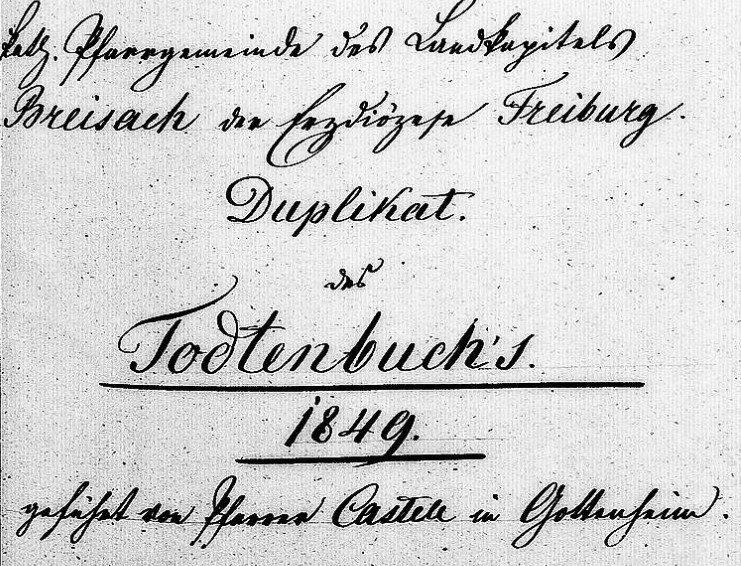 kath. Pfarrgemeinde des Landkapitels
Breisach der Erzdiözese Freiburg.
Duplikat.
des
Todtenbuch's.
1849.
geführt von Pfarrer Castell in Gottenheim.